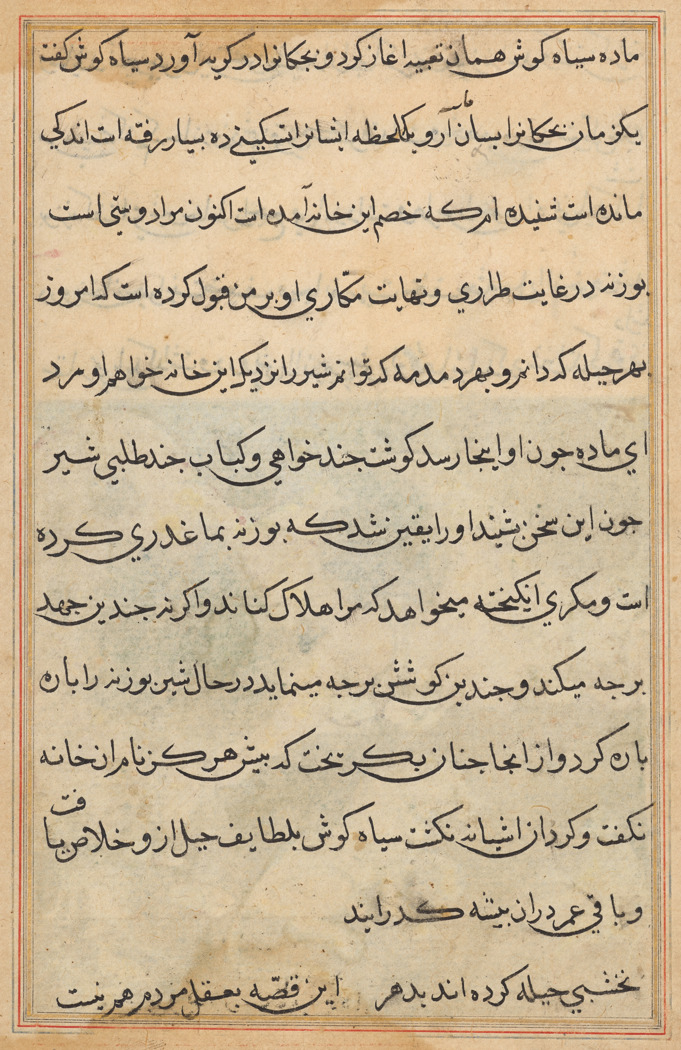 ماده سیاه کوش همان تعبیه اغاز کرد و بچکانرا در کریه آورد سیاه کوش کفت
یکزمان بچکانرا بسان آر و یکلحظه ایشانرا تسکینی ده بسیار رفته است اندکی
مانده است شنیده ام که خصم این خانه آمده است اکنون مرا دوستی است
بوزنه در غایت طراری و نهایت مکّاري او بر من قبول کرده است که امروز
بهر حیله که دانم و بهر دمدمه که توانم شیر را نزدیک این خانه خواهم اورد
اي ماده جون او اینجا رسد کوشت جند خواهي و کباب جند طلبي شیر
جون این سخن شنید او را یقین شد که بوزنه بما غدري کرده
است و مکري انکیخته میخواهد که مرا هلاک کناند و اکرنه جندین جهد
برجه میکند و جندین کوشش برجه مینماید در حال شیر بوزنه را باره
باره کرد و از انجا جنان بکریخت که بیش هرکز نام ان خانه
نکفت و کرد ان اشیانه نکشت سیاه کوش بلطایف حیل ازو خلاص یافت
و باقي عمر دران بیشه کذرانید
نخشبي حیله کرده اند بدهر این قصّه بعقل مردم هم نیست